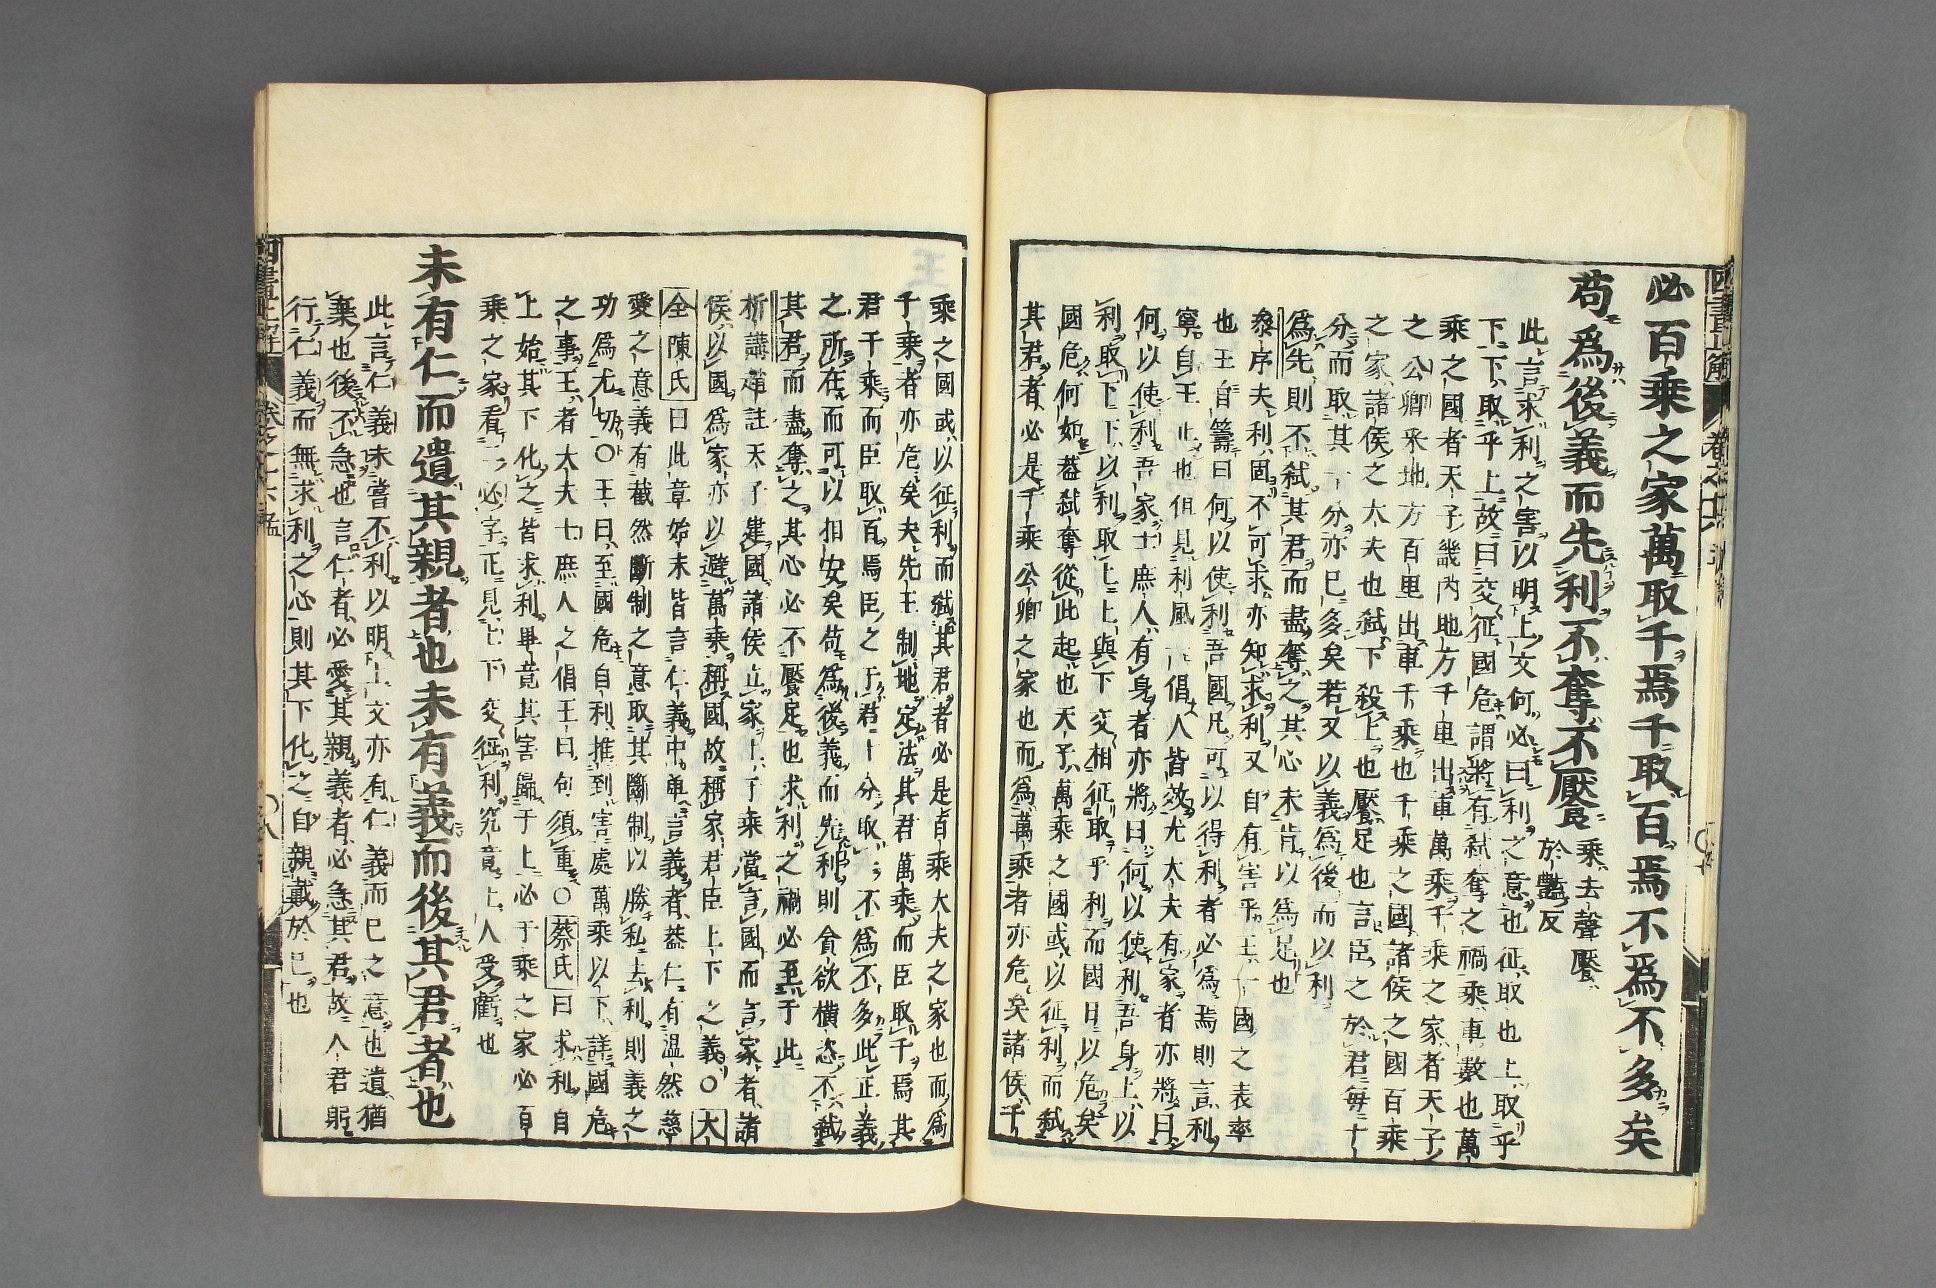 必百乘之家萬取千焉千取百焉不爲不多矣
苟爲後義而先利不奪不饜 乘去聲饜
於豔反
此言求利之害以明上文何必曰利之意也征取也上取乎
下下取乎上故曰交征國危謂將有弑奪之禍乘車數也萬
乘之國者天子畿內地方千里出車萬乘千乘之家者天子
之公卿采地方百里出車千乘也千乘之國諸侯之國百乘
之家諸侯之大夫也弑下殺上也饜足也言臣之於君每十
分而取其一分亦已多矣若又以義爲後而以利
爲先則不弑其君而盡奪之其心未肯以爲足也
參序夫利固不可求亦知求利又自有害乎王一國之表率
也王自籌曰何以使利吾國凡可以得利者必爲焉則言利
寧自王止也但見利風一倡人皆效尤大夫有家者亦將曰
何以使利吾家士庶人有身者亦將曰何以使利吾身上以
利取下下以利取上上與下交相征取乎利而國日以危矣
國危何如葢弑奪從此起也天子萬乘之國或以征利而弑
其君者必是千乘公卿之家也而爲萬乘者亦危矣諸侯千
乘之國或以征利而弑其君者必是百乘大夫之家也而爲
千乘者亦危矣夫先王制地定法其君萬乘而臣取千焉其
君千乘而臣取百焉臣之于君十分取一不爲不多此正義
之所在而可以相安矣苟爲後義而先利則貪欲橫恣不弑
其君而盡奪之其心必不饜足也求利之禍必至于此
析講趙註天子建國諸侯立家上千乘當言國而言家者諸
侯以國爲家亦以避萬乘稱國故稱家君臣上下之義〇大
全陳氏曰此章始末皆言仁義中單言義者葢仁有溫然慈
愛之意義有截然斷制之意取其斷制以勝私去利則義之
功爲尤切〇王曰至國危自利推到害處萬乘以下詳國危
之事王者大夫士庶人之倡王曰句須重〇蔡氏曰求利自
上始其下化之皆求利畢竟其害歸于上必千乘之家必百
乘之家看二必字正見上下交征利究竟上人受虧也
未有仁而遺其親者也未有義而後其君者也
此言仁義未嘗不利以明上文亦有仁義而已之意也遺猶
棄也後不急也言仁者必愛其親義者必急其君故人君躬
行仁義而無求利之心則其下化之自親戴於己也